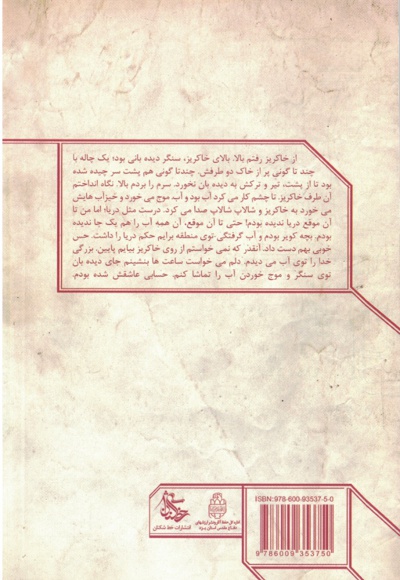 از خاکریز رفتم بالا. بالای خاکریز، سنگر دیده بانی بود؛ یک چاله با
چند تا گونی پر از خاک دو طرفش. چندتا گونی هم پشت سر چیده شده
بود تا از پشت، تیر و ترکش به دیده بان نخورد. سرم را بردم بالا. نگاه انداختم
آن طرف خاکریز. تا چشم کار می کرد آب بود و آب. موج می خورد و خیزآب هایش
می خورد به خاکریز و شالاپ شالاپ صدا می کرد. درست مثل دریا؛ اما من تا
آن موقع دریا ندیده بودم! حتی تا آن موقع، آن همه آب را هم یک جا ندیده
بودم. بچه کویر بودم و آب گرفتگی توی منطقه برایم حکم دریا را داشت. حس
خوبی بهم دست داد. آنقدر که نمی خواستم از روی خاکریز بیایم پایین. بزرگی
خدا را توی آب می دیدم. دلم می خواست ساعت ها بنشینم جای دیده بان
توی سنگر و موج خوردن آب را تماشا کنم. حسابی عاشقش شده بودم.
ISBN: 978-600-93537-5-0
9 786009 353750
اداره کل حفظ آثار و نشر ارزشهای
دفاع مقدس استان یزد
انتشارات خط شکنان